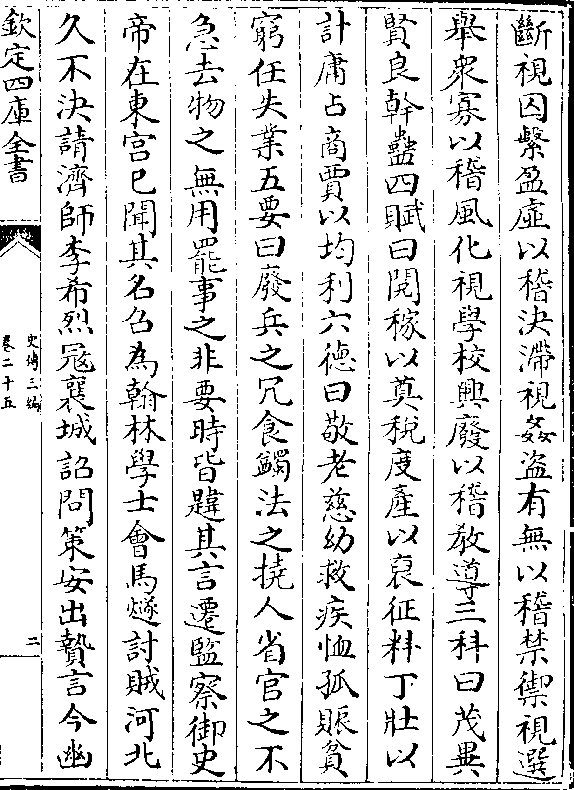 斷視囚繫盈虛以稽決滯視姦盜有無以稽禁禦視選
舉衆寡以稽風化視學校興廢以稽教導三科曰茂異
賢良幹蠱四賦曰閱稼以奠稅度產以裒征料丁壯以
計庸占商賈以均利六德曰敬老慈幼救疾恤孤賑貧
窮任失業五要曰廢兵之冗食蠲法之撓人省官之不
急去物之無用罷事之非要時皆韙其言遷監察御史
帝在東宮已聞其名召為翰林學士會馬燧討賊河北
久不決請濟師李希烈冦襄城詔問策安出贄言今幽
欽定四庫全書
史傳三編
卷二十五
二